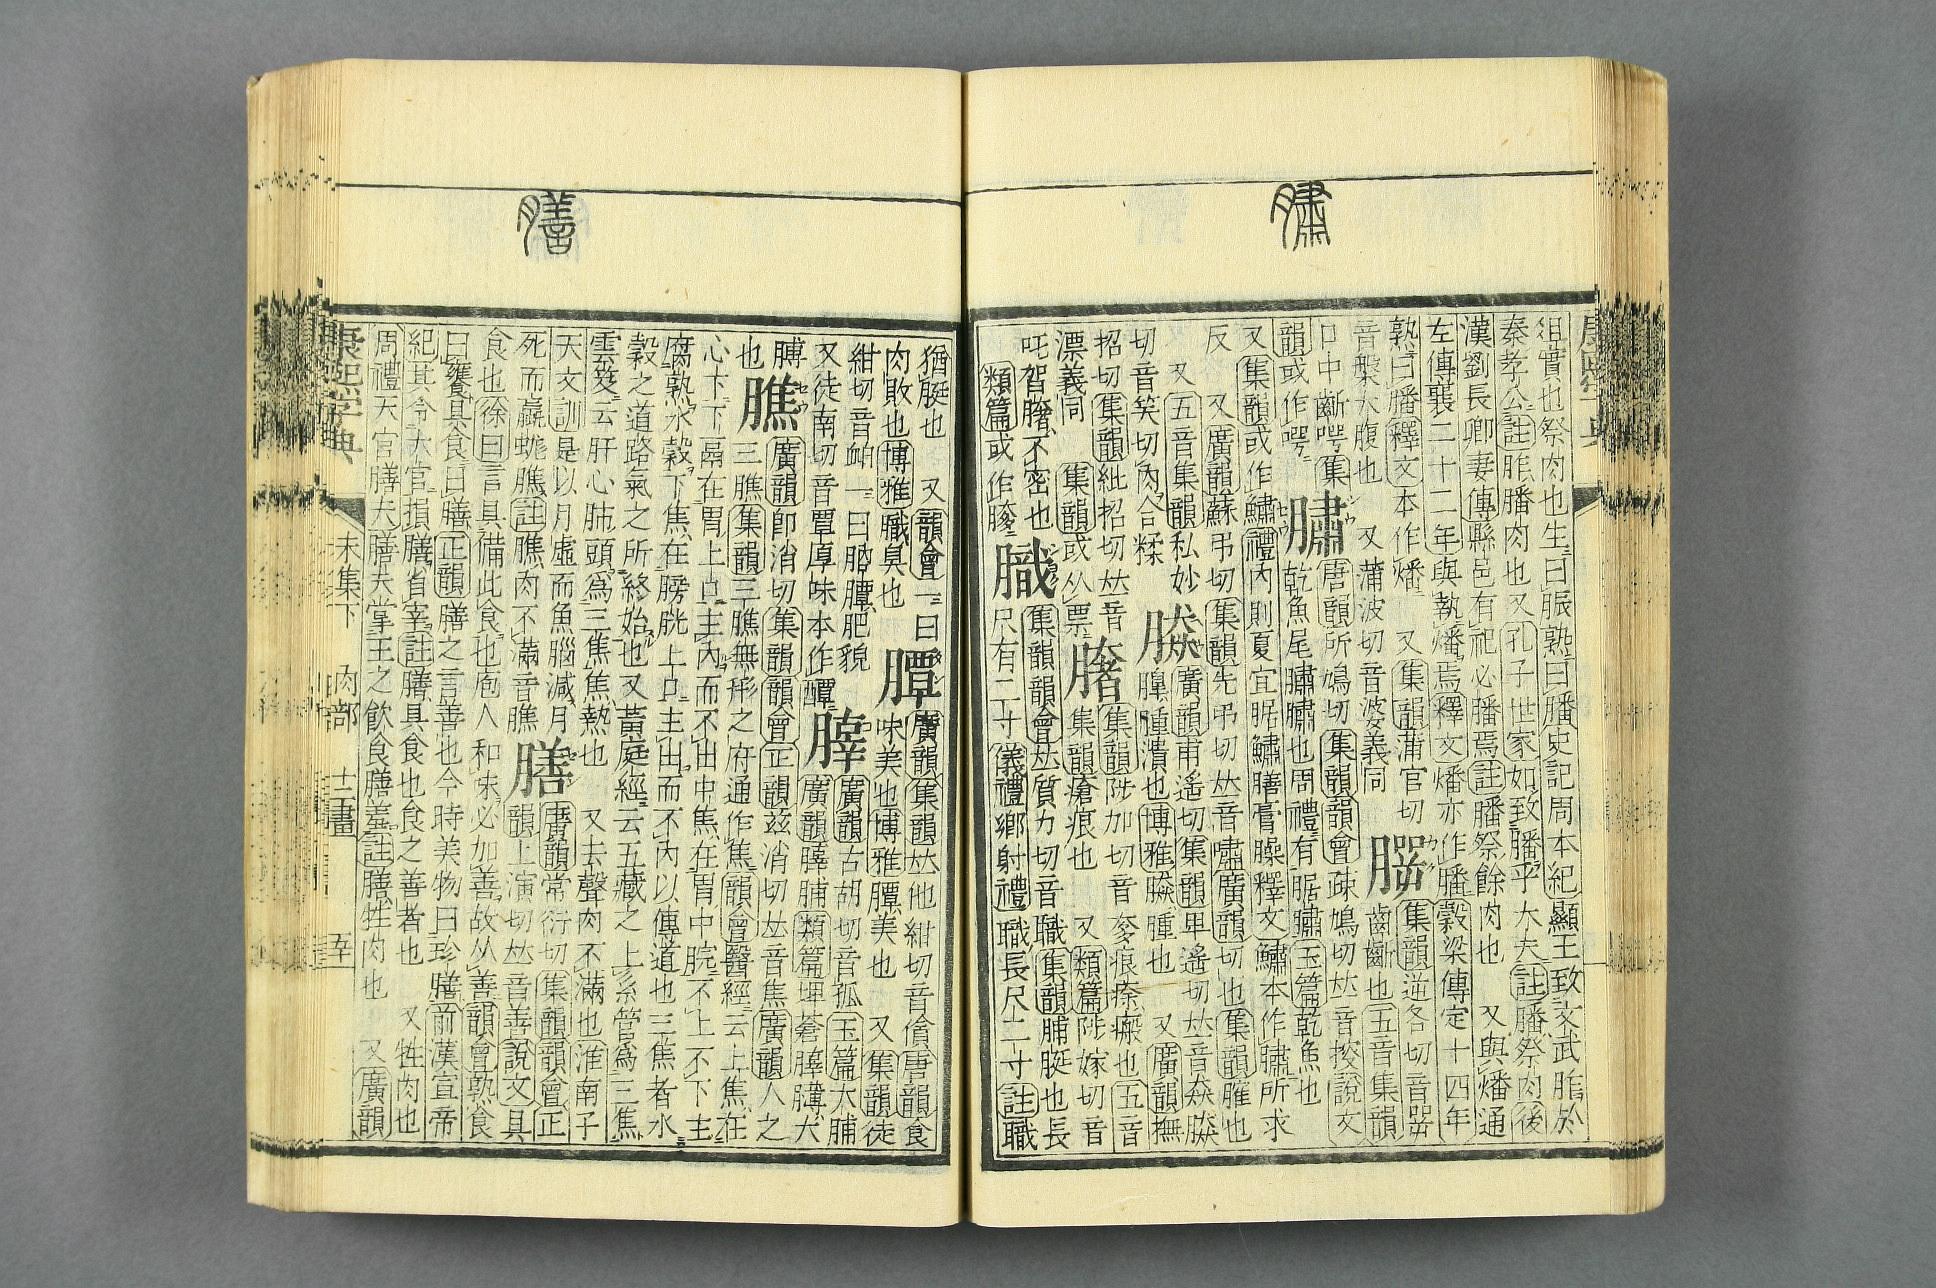 俎實也祭肉也生曰脤熟曰膰史記周本紀顯王致文武胙於
秦孝公註胙膰肉也又孔子世家如致膰乎大夫註膰祭肉後
漢劉長卿妻傳縣邑有祀必膰焉註膰祭餘肉也 又與燔通
左傳襄二十二年與執燔焉釋文燔亦作膰穀梁傳定十四年
孰曰膰釋文本作燔 又集韻蒲官切
音槃大腹也 又蒲波切音婆義同
集韻逆各切音咢
齒齗也五音集韻
口中齗咢集
韻或作咢
䐹
唐韻所鳩切集韻韻會疎鳩切𠀤音搜說文
乾魚尾䐹䐹也周禮有腒䐹玉篇乾魚也
又集韻或作鱐禮內則夏宜腒鱐膳膏臊釋文鱐本作䐹所求
反 又廣韻蘇弔切集韻先弔切𠀤音嘯廣韻切也集韻脽也
又五音集韻私妙
切音笑切肉合糅
廣韻甫遙切集韻卑遙切𠀤音猋
腫潰也博雅 腫也 又廣韻撫
招切集韻紕招切𠀤音
漂義同 集韻或从票
集韻陟加切音奓痕瘃瘢也五音
集韻瘡痕也 又類篇陟嫁切音
吒 不密也
類篇或作
膱
集韻韻會𠀤質力切音職集韻脯脡也長
尺有二寸儀禮鄉射禮膱長尺二寸註膱
猶脡也 又韻會一曰
肉敗也博雅膱臭也
䐺
廣韻集韻𠀤他紺切音僋唐韻食
味美也博雅䐺美也 又集韻徒
紺切音 一曰 䐺肥貌
又徒南切音覃厚味本作醰
膟
廣韻古胡切音孤玉篇大脯
廣韻 脯類篇埤蒼 膊大
膊
也
膲
廣韻卽消切集韻韻會正韻兹消切𠀤音焦廣韻人之
三膲集韻三膲無形之府通作焦韻會醫經云上焦在
心下下鬲在胃上口主內而不出中焦在胃中脘不上不下主
腐熟水穀下焦在膀胱上口主出而不內以傳道也三焦者水
穀之道路氣之所終始也又黃庭經云五藏之上系管爲三焦
雲笈云肝心肺頭爲三焦焦熱也 又去聲肉不滿也淮南子
天文訓是以月虛而魚腦減月
死而蠃蛖膲註膲肉不滿音膲
膳
廣韻常衍切集韻韻會正
韻上演切𠀤音善說文具
食也徐曰言具備此食也庖人和味必加善故从善韻會熟食
曰饔具食曰膳正韻膳之言善也今時美物曰珍膳前漢宣帝
紀其令大官損膳省宰註膳具食也食之善者也 又牲肉也
周禮天官膳夫膳夫掌王之飮食膳羞註膳牲肉也 又廣韻
䐹
膳
康熙字典
未集下 肉部 十二畫 五十